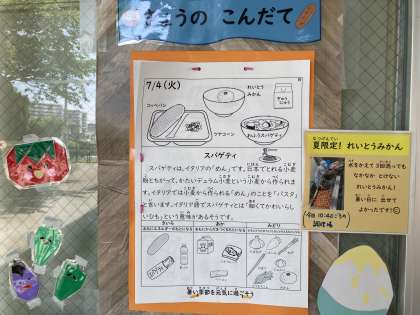 きょうの こんだて
7/4(火)
コッペパン
れいとう
みかん
ぎゅう
にゅう
ツナコーン
スパゲティ
スパゲティは、イタリアの「めん」です。日本でとれる小麦
粉とちがって、かたいデュラム小麦という小麦から作られま
す。イタリアでは小麦から作られる「めん」のことを「パスタ」
と言います。イタリア語でスパゲティとは「細くてかわいらし
いひも」という意味があるそうです。
きいろ
あか
みどり
暑い季節を元気に過ごそう
夏限定! れいとうみかん
水をかえて3回洗っても
なかなか とけない
れいとうみかん!
暑い日に 出せて
よかったです!